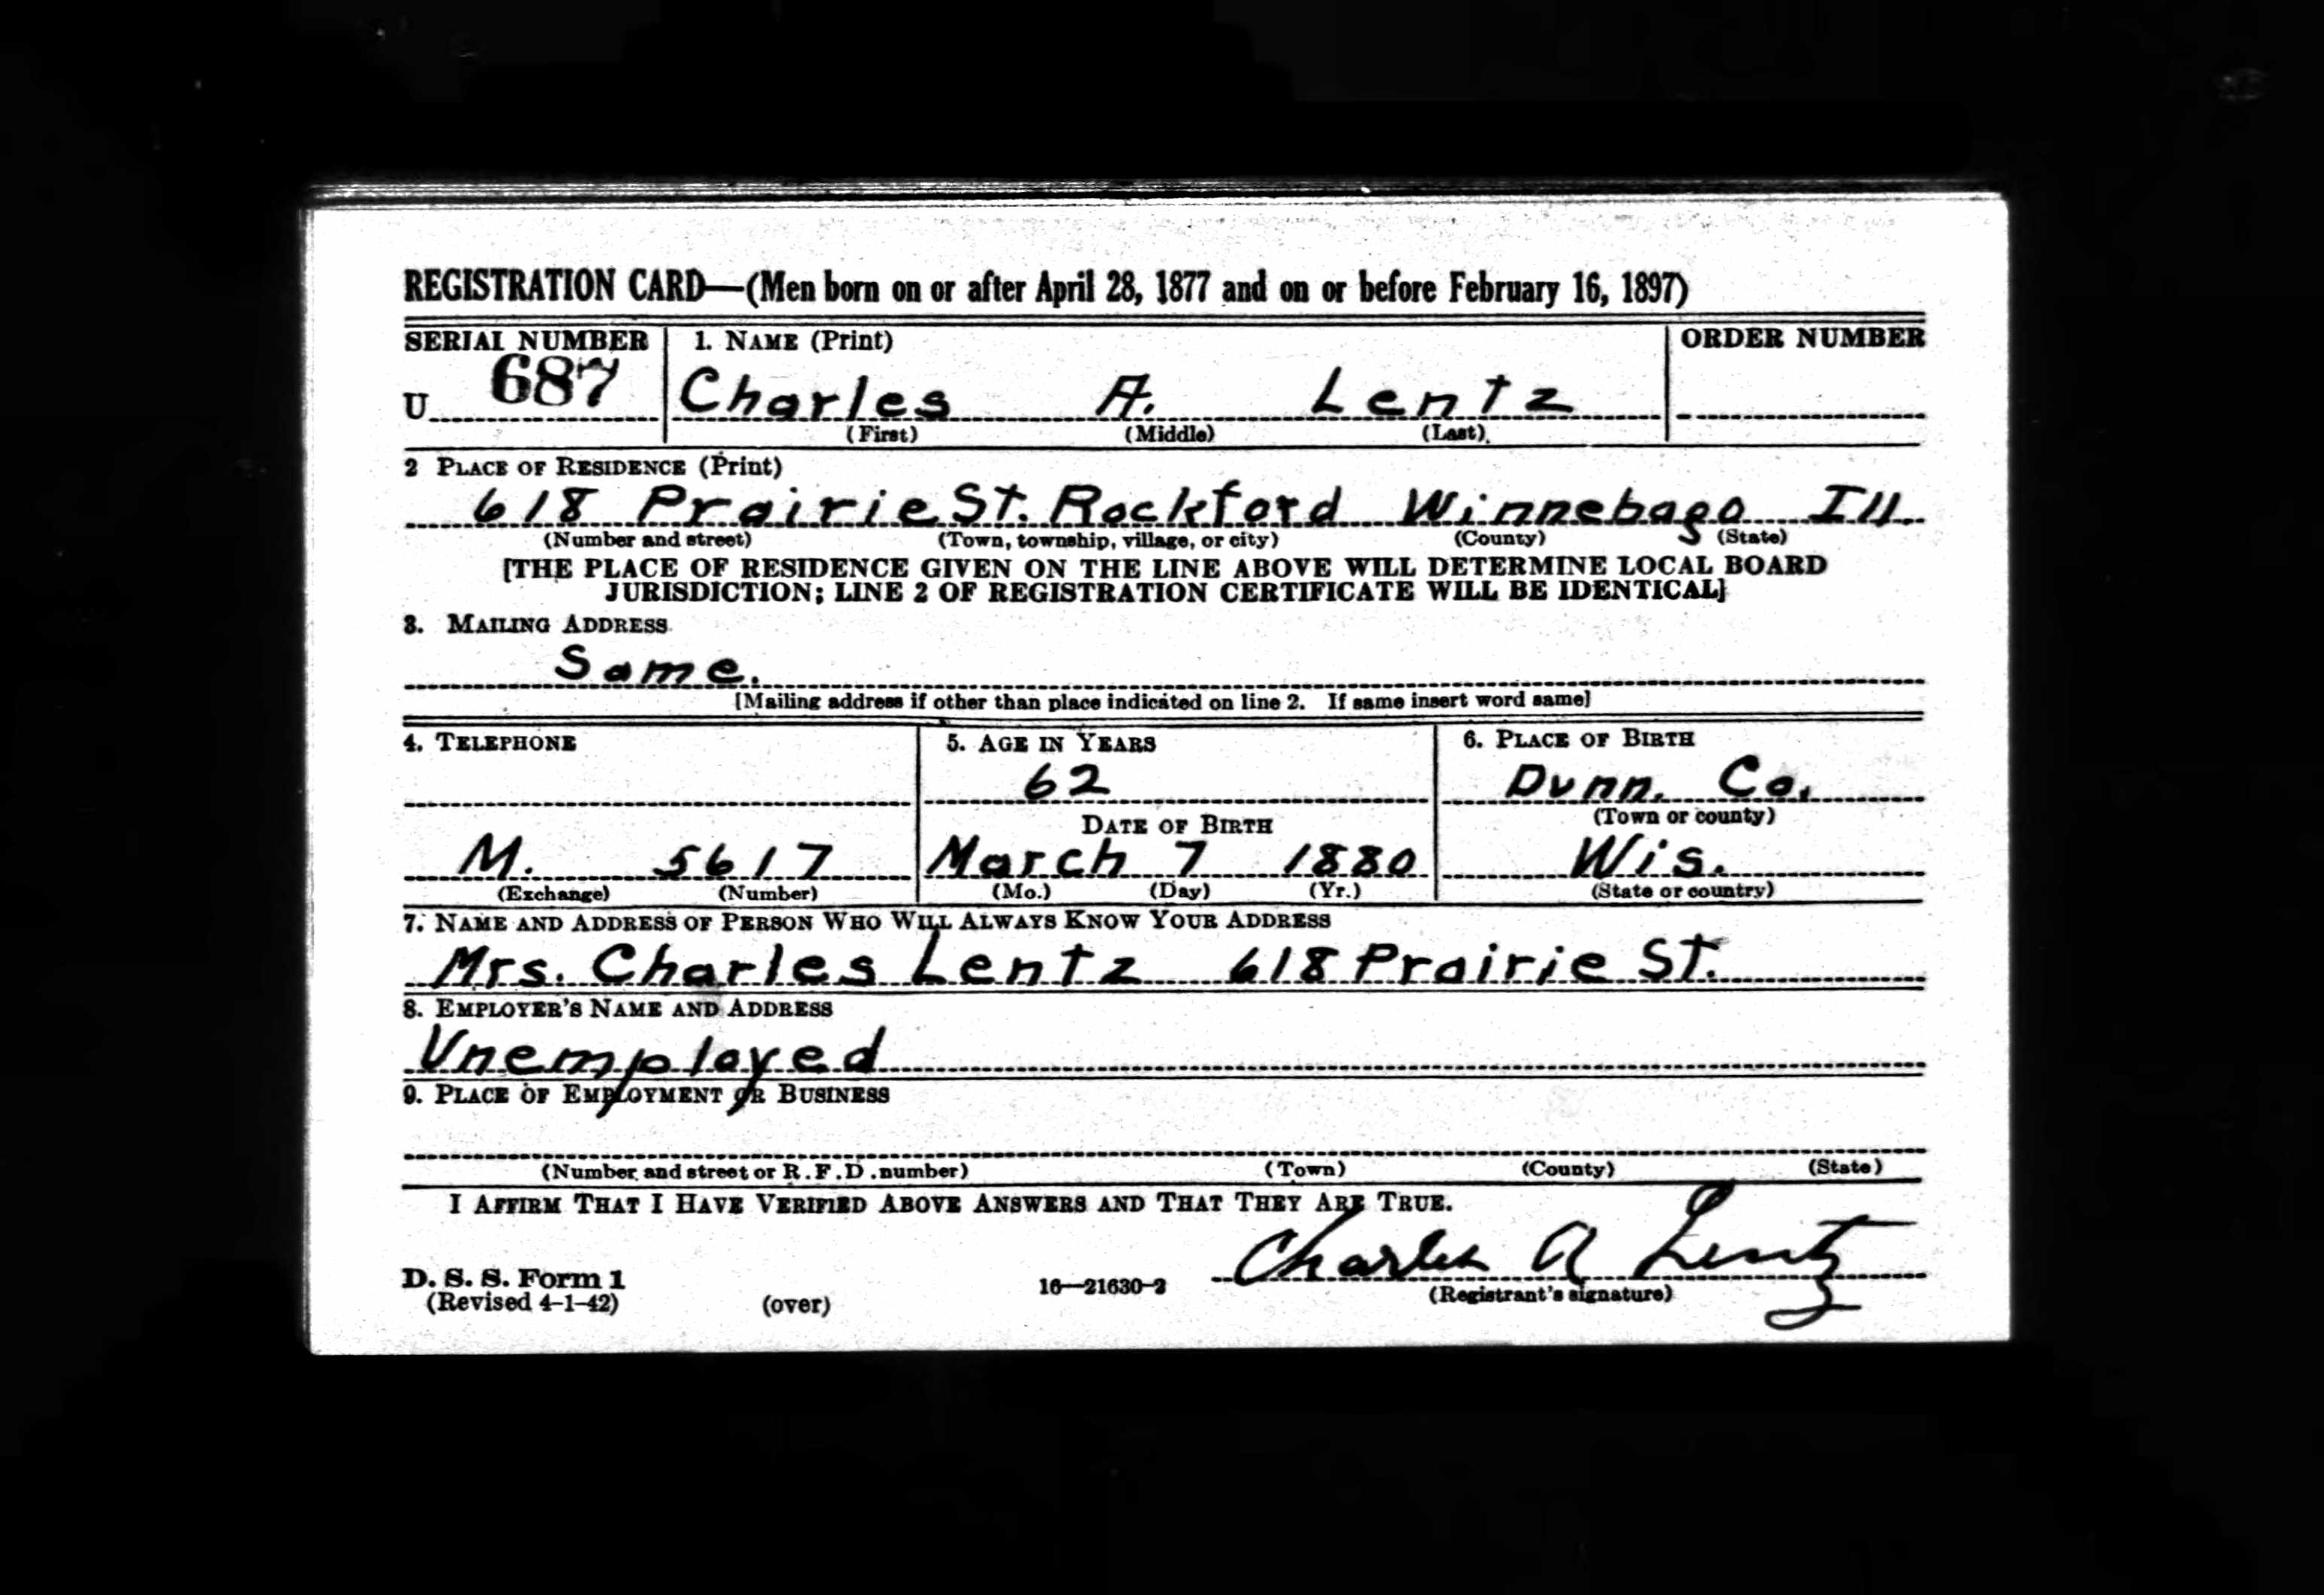 REGISTRATION CARD—(Men born on or after April 28, 1877 and on or before February 16, 1897)
SERIAL NUMBER 1. NAME (Print) ORDER NUMBER
U 687 Charles A. Lentz
(First) (Middle) (Last)
2 PLACE OF RESIDENCE (Print)
618 Prairie St. Rockford Winnebago Ill.
(Number and street) (Town, township, village, or city) (County) (State)
[THE PLACE OF RESIDENCE GIVEN ON THE LINE ABOVE WILL DETERMINE LOCAL BOARD
JURISDICTION; LINE 2 OF REGISTRATION CERTIFICATE WILL BE IDENTICAL]
3. MAILING ADDRESS
Same.
[Mailing address if other than place indicated on line 2. If same insert word same]
4. TELEPHONE 5. AGE IN YEARS 6. PLACE OF BIRTH
62 Dunn. Co.
DATE OF BIRTH (Town or county)
M. 5617 March 7 1880 Wis.
(Exchange) (Number) (Mo.) (Day) (Yr.) (State or country)
7. NAME AND ADDRESS OF PERSON WHO WILL ALWAYS KNOW YOUR ADDRESS
Mrs. Charles Lentz 618 Prairie St.
8. EMPLOYER'S NAME AND ADDRESS
Unemployed
9. PLACE OF EMPLOYMENT OR BUSINESS
(Number and street or R.F.D. number) (Town) (County) (State)
I AFFIRM THAT I HAVE VERIFIED ABOVE ANSWERS AND THAT THEY ARE TRUE.
Charles A Lentz
D. S. S. Form 1 16—21630-2 (Registrant's signature)
(Revised 4-1-42) (over)